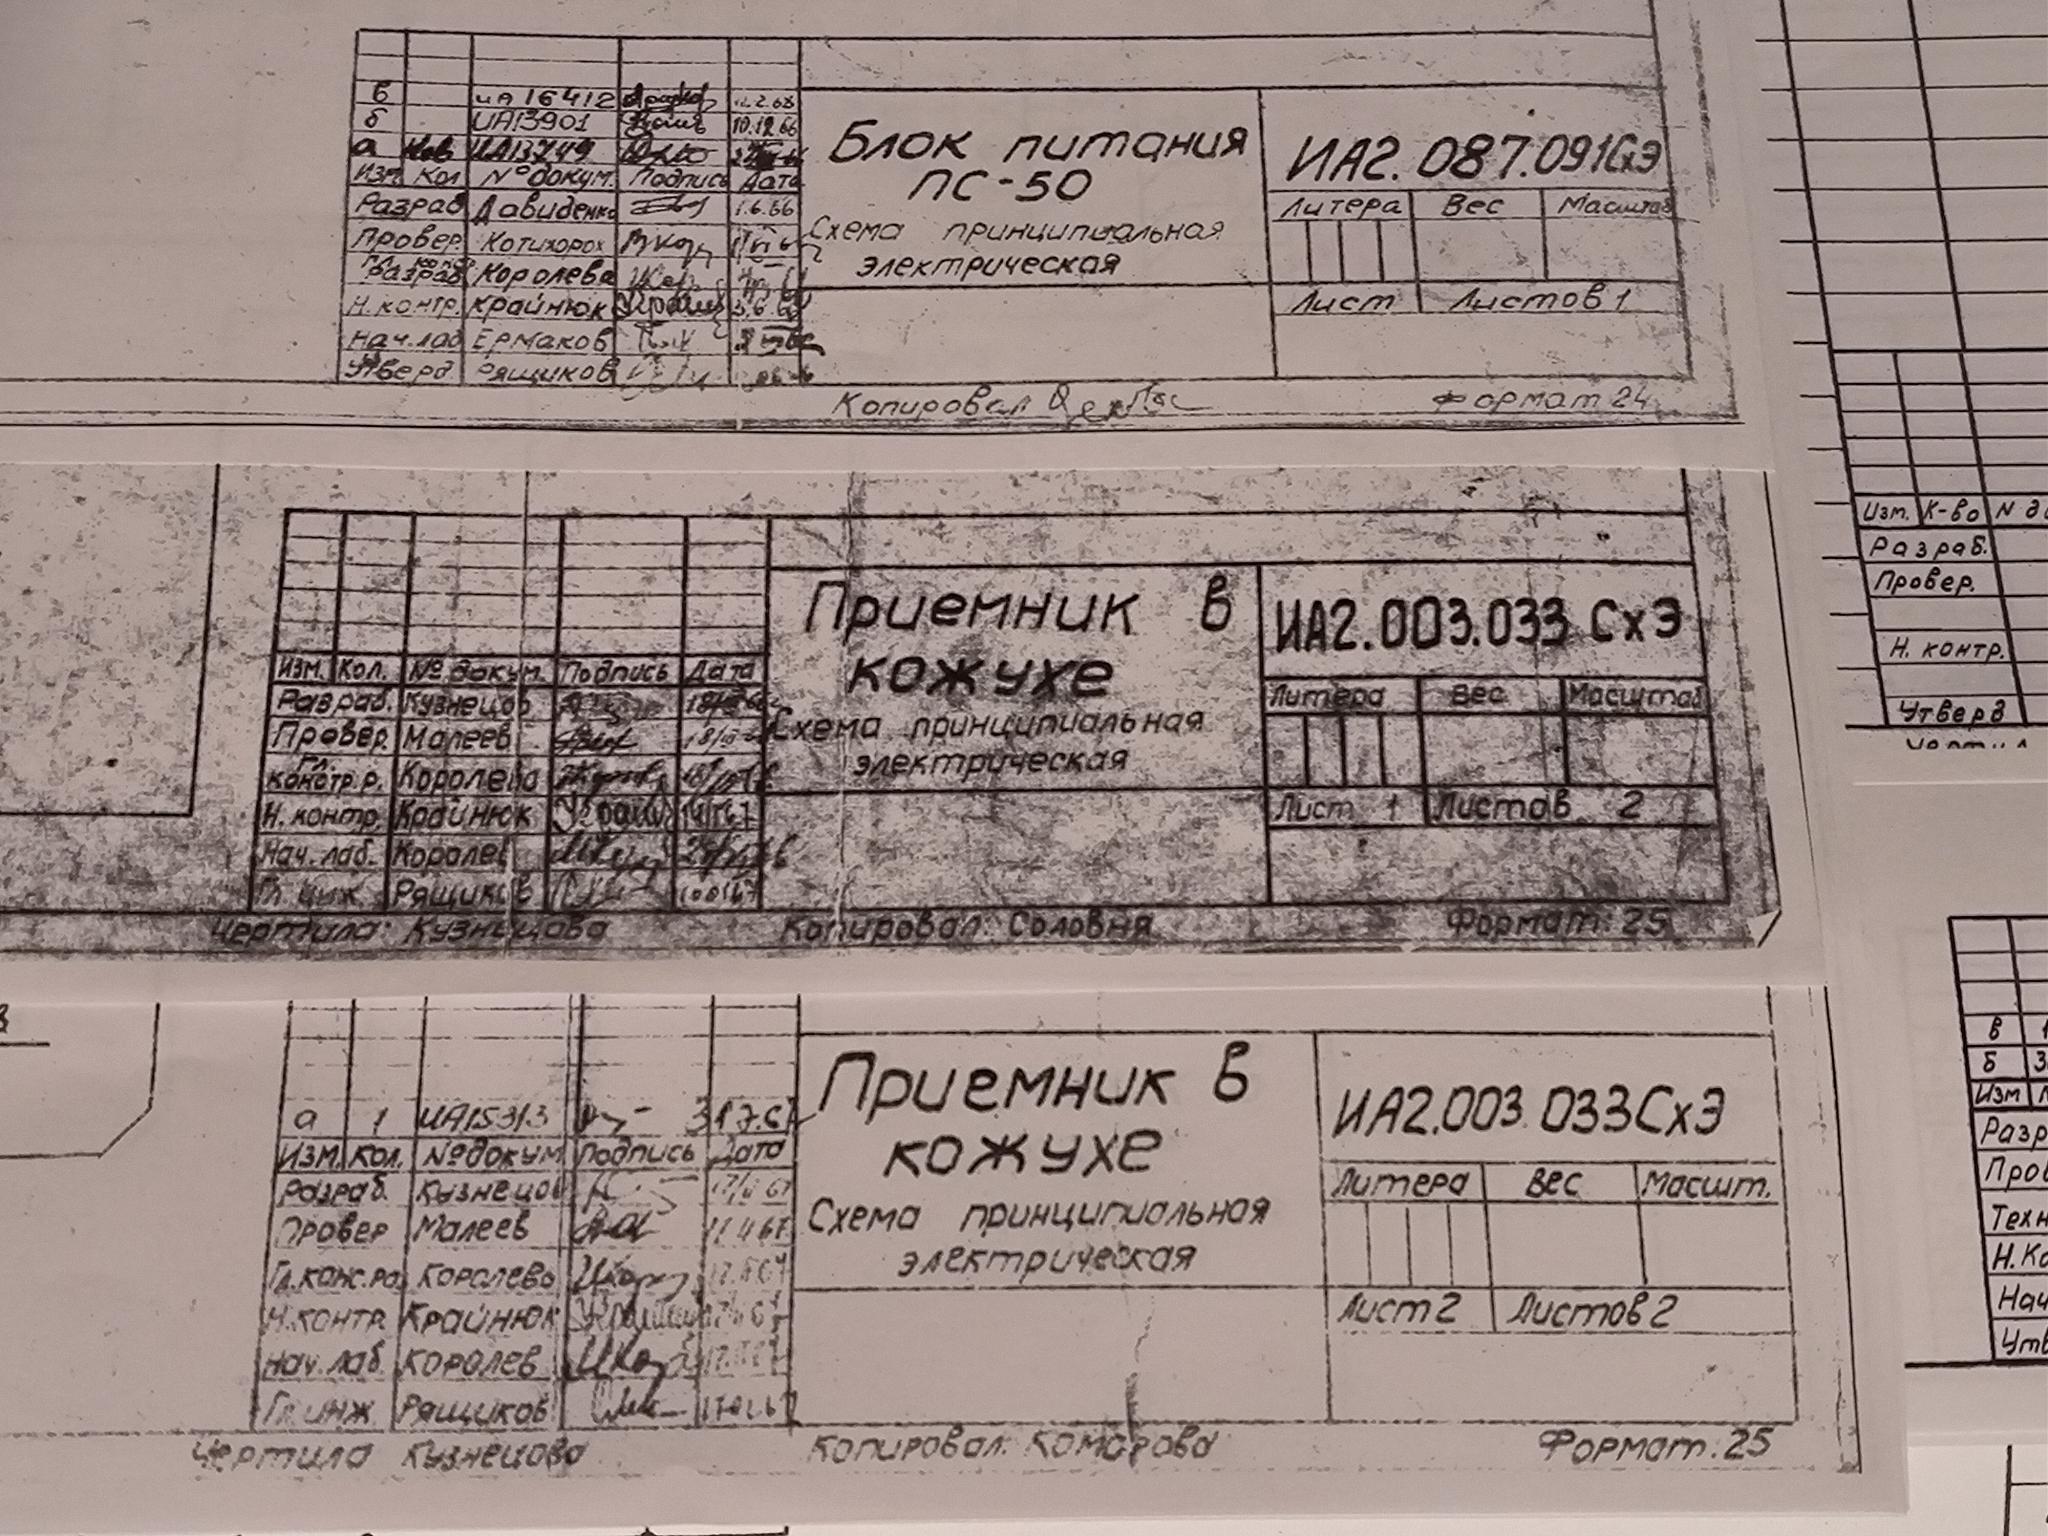 в ИА16412
б ИА13901 10.12.66
а Нов ИА13749
Изм. Кол № докум. Подпись Дата
Разраб Давиденко 1.6.66
Провер. Котихорох
разраб Королева
Н.контр. Крайнюк
Нач.лаб Ермаков
Утверд Рящиков
Блок питания
ПС-50
Схема принципиальная
электрическая
ИА2.087.091СхЭ
Литера Вес Масштаб
Лист Листов 1
Копировал
Формат 24
Изм. Кол. № докум. Подпись Дата
Разраб. Кузнецов
Провер. Малеев
Гл.
констр.р. Королева
Н.контр. Крайнюк
Нач.лаб. Королев
Гл. инж. Рящиков
Приемник в
кожухе
Схема принципиальная
электрическая
ИА2.003.033 СхЭ
Литера Вес Масштаб
Лист 1 Листов 2
Чертила: Кузнецова
Копировал: Соловня
Формат: 25
а 1 ИА15313 31.7.67
Изм. Кол. № докум Подпись Дата
Разраб. Кузнецов
Провер Малеев 11.4.67
Гл.конс.ра Королева
Н.контр. Крайнюк
Нач.лаб. Королев
Гл.инж. Рящиков
Приемник в
кожухе
Схема принципиальная
электрическая
ИА2.003.033СхЭ
Литера Вес Масшт.
Лист 2 Листов 2
Чертила Кузнецова
Копировал: Комарова
Формат: 25
Изм. К-во N до
Разраб.
Провер.
Н. контр.
Утверд
в
б
Изм
Разр
Пров
Техн
Н.Ко
Нач
Утв